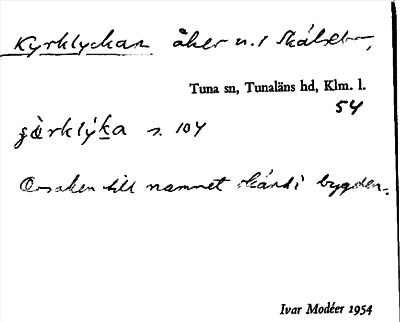 Kyrklyckan åker n. 1
Tuna sn, Tunaläns hd, Klm. l.
54
s. 104
Orsaken till namnet känd i bygden.
Ivar Modéer 1954